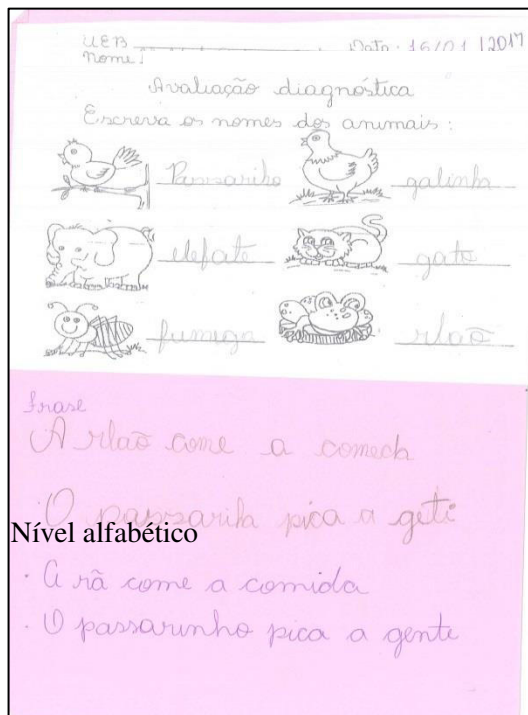 UEB . Data: 16/01/2017
Nome:
Avaliação diagnóstica
Escreva os nomes dos animais:
Passariho galinh
elefate gato
fumiga rlaõ
Frase
A rlaõ come a comech
O passarih pica a geti
Nível alfabético
· A rã come a comida
· O passarinho pica a gente